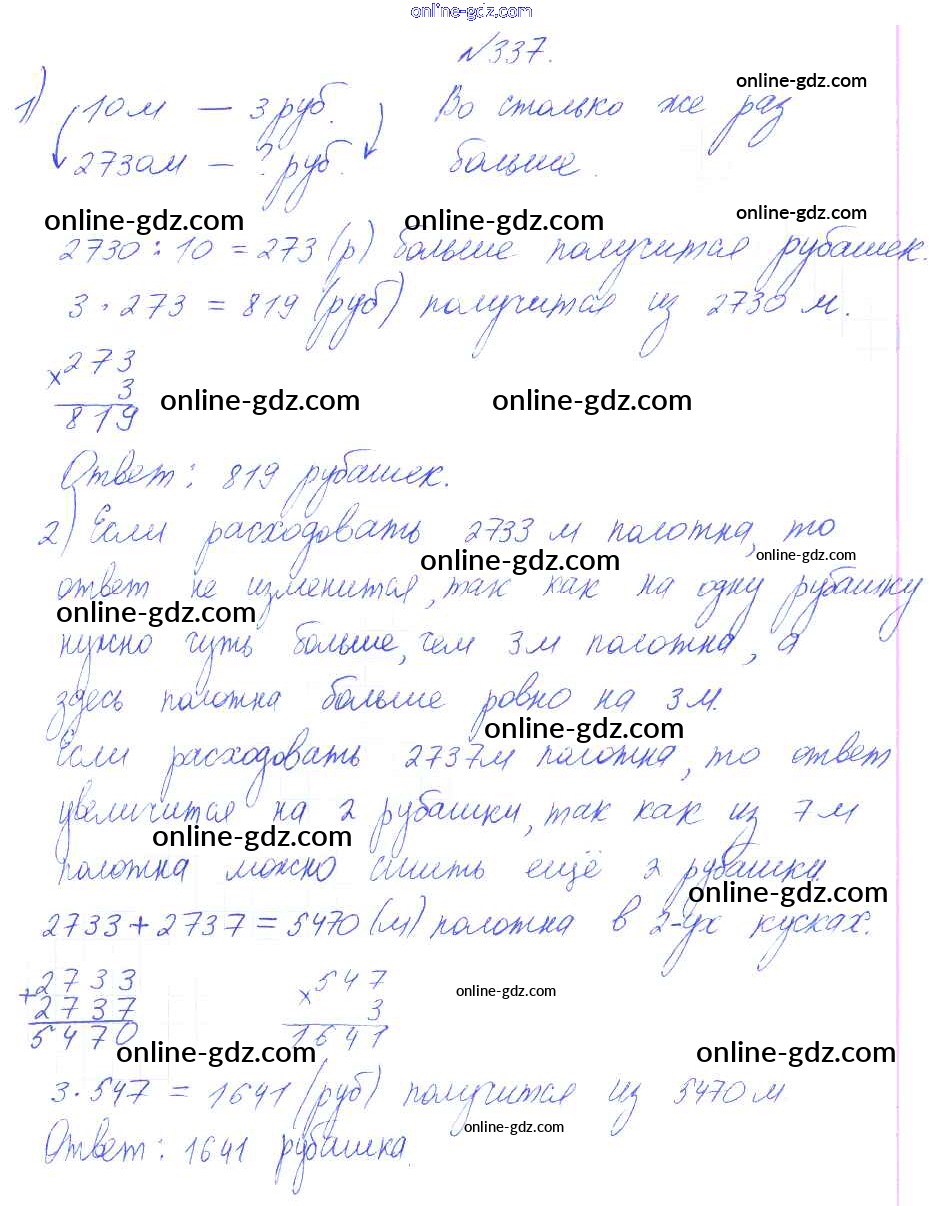 online-gdz.com
№337.
online-gdz.com
1) 10м — 3 руб. Во столько же раз
2730м — ? руб. больше.
online-gdz.com online-gdz.com online-gdz.com
2730 : 10 = 273 (р) больше получится рубашек.
3 · 273 = 819 (руб) получится из 2730 м.
× 273
3
819
online-gdz.com online-gdz.com
Ответ: 819 рубашек.
2) Если расходовать 2733 м полотна, то
online-gdz.com online-gdz.com
ответ не изменится, так как на одну рубашку
online-gdz.com
нужно чуть больше, чем 3м полотна, а
здесь полотна больше ровно на 3м.
online-gdz.com
Если расходовать 2737м полотна, то ответ
увеличится на 2 рубашки, так как из 7 м
online-gdz.com
полотна можно сшить ещё 2 рубашки
online-gdz.com
2733 + 2737 = 5470 (м) полотна в 2-ух кусках.
+ 2733 × 547
2737 3
5470 1641
online-gdz.com
online-gdz.com online-gdz.com
3 · 547 = 1641 (руб) получится из 5470 м
online-gdz.com
Ответ: 1641 рубашка